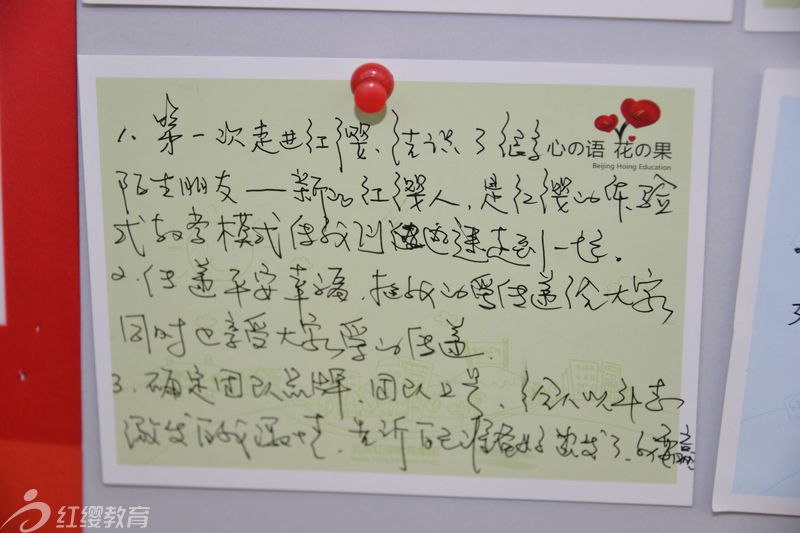 心の语 花の果
Beijing Hoing Education
1、第一次走进红缨、结识了很多
陌生朋友——新的红缨人，是红缨的体验
式教学模式使我们迅速走到一起。
2、传递平安幸福，把我的爱传递给大家
同时也享受大家爱的传递。
3、确定团队品牌，团队口号，给人以斗志
激发自我激情，告诉自己准备好出发了、
红缨教育